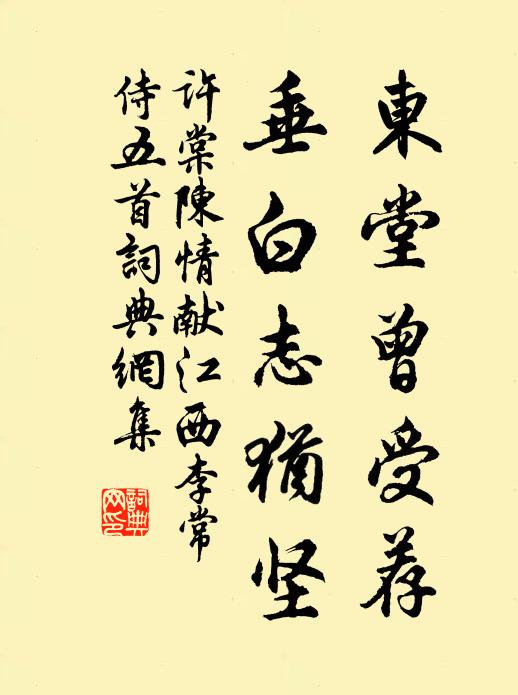 東堂曾受荐
垂白志猶坚
許棠陳情献江西李常
侍五首詞典網集
詞典
网印